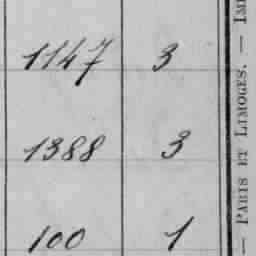 1147 3
1388 3
100 1
— PARIS ET LIMOGES. — IM